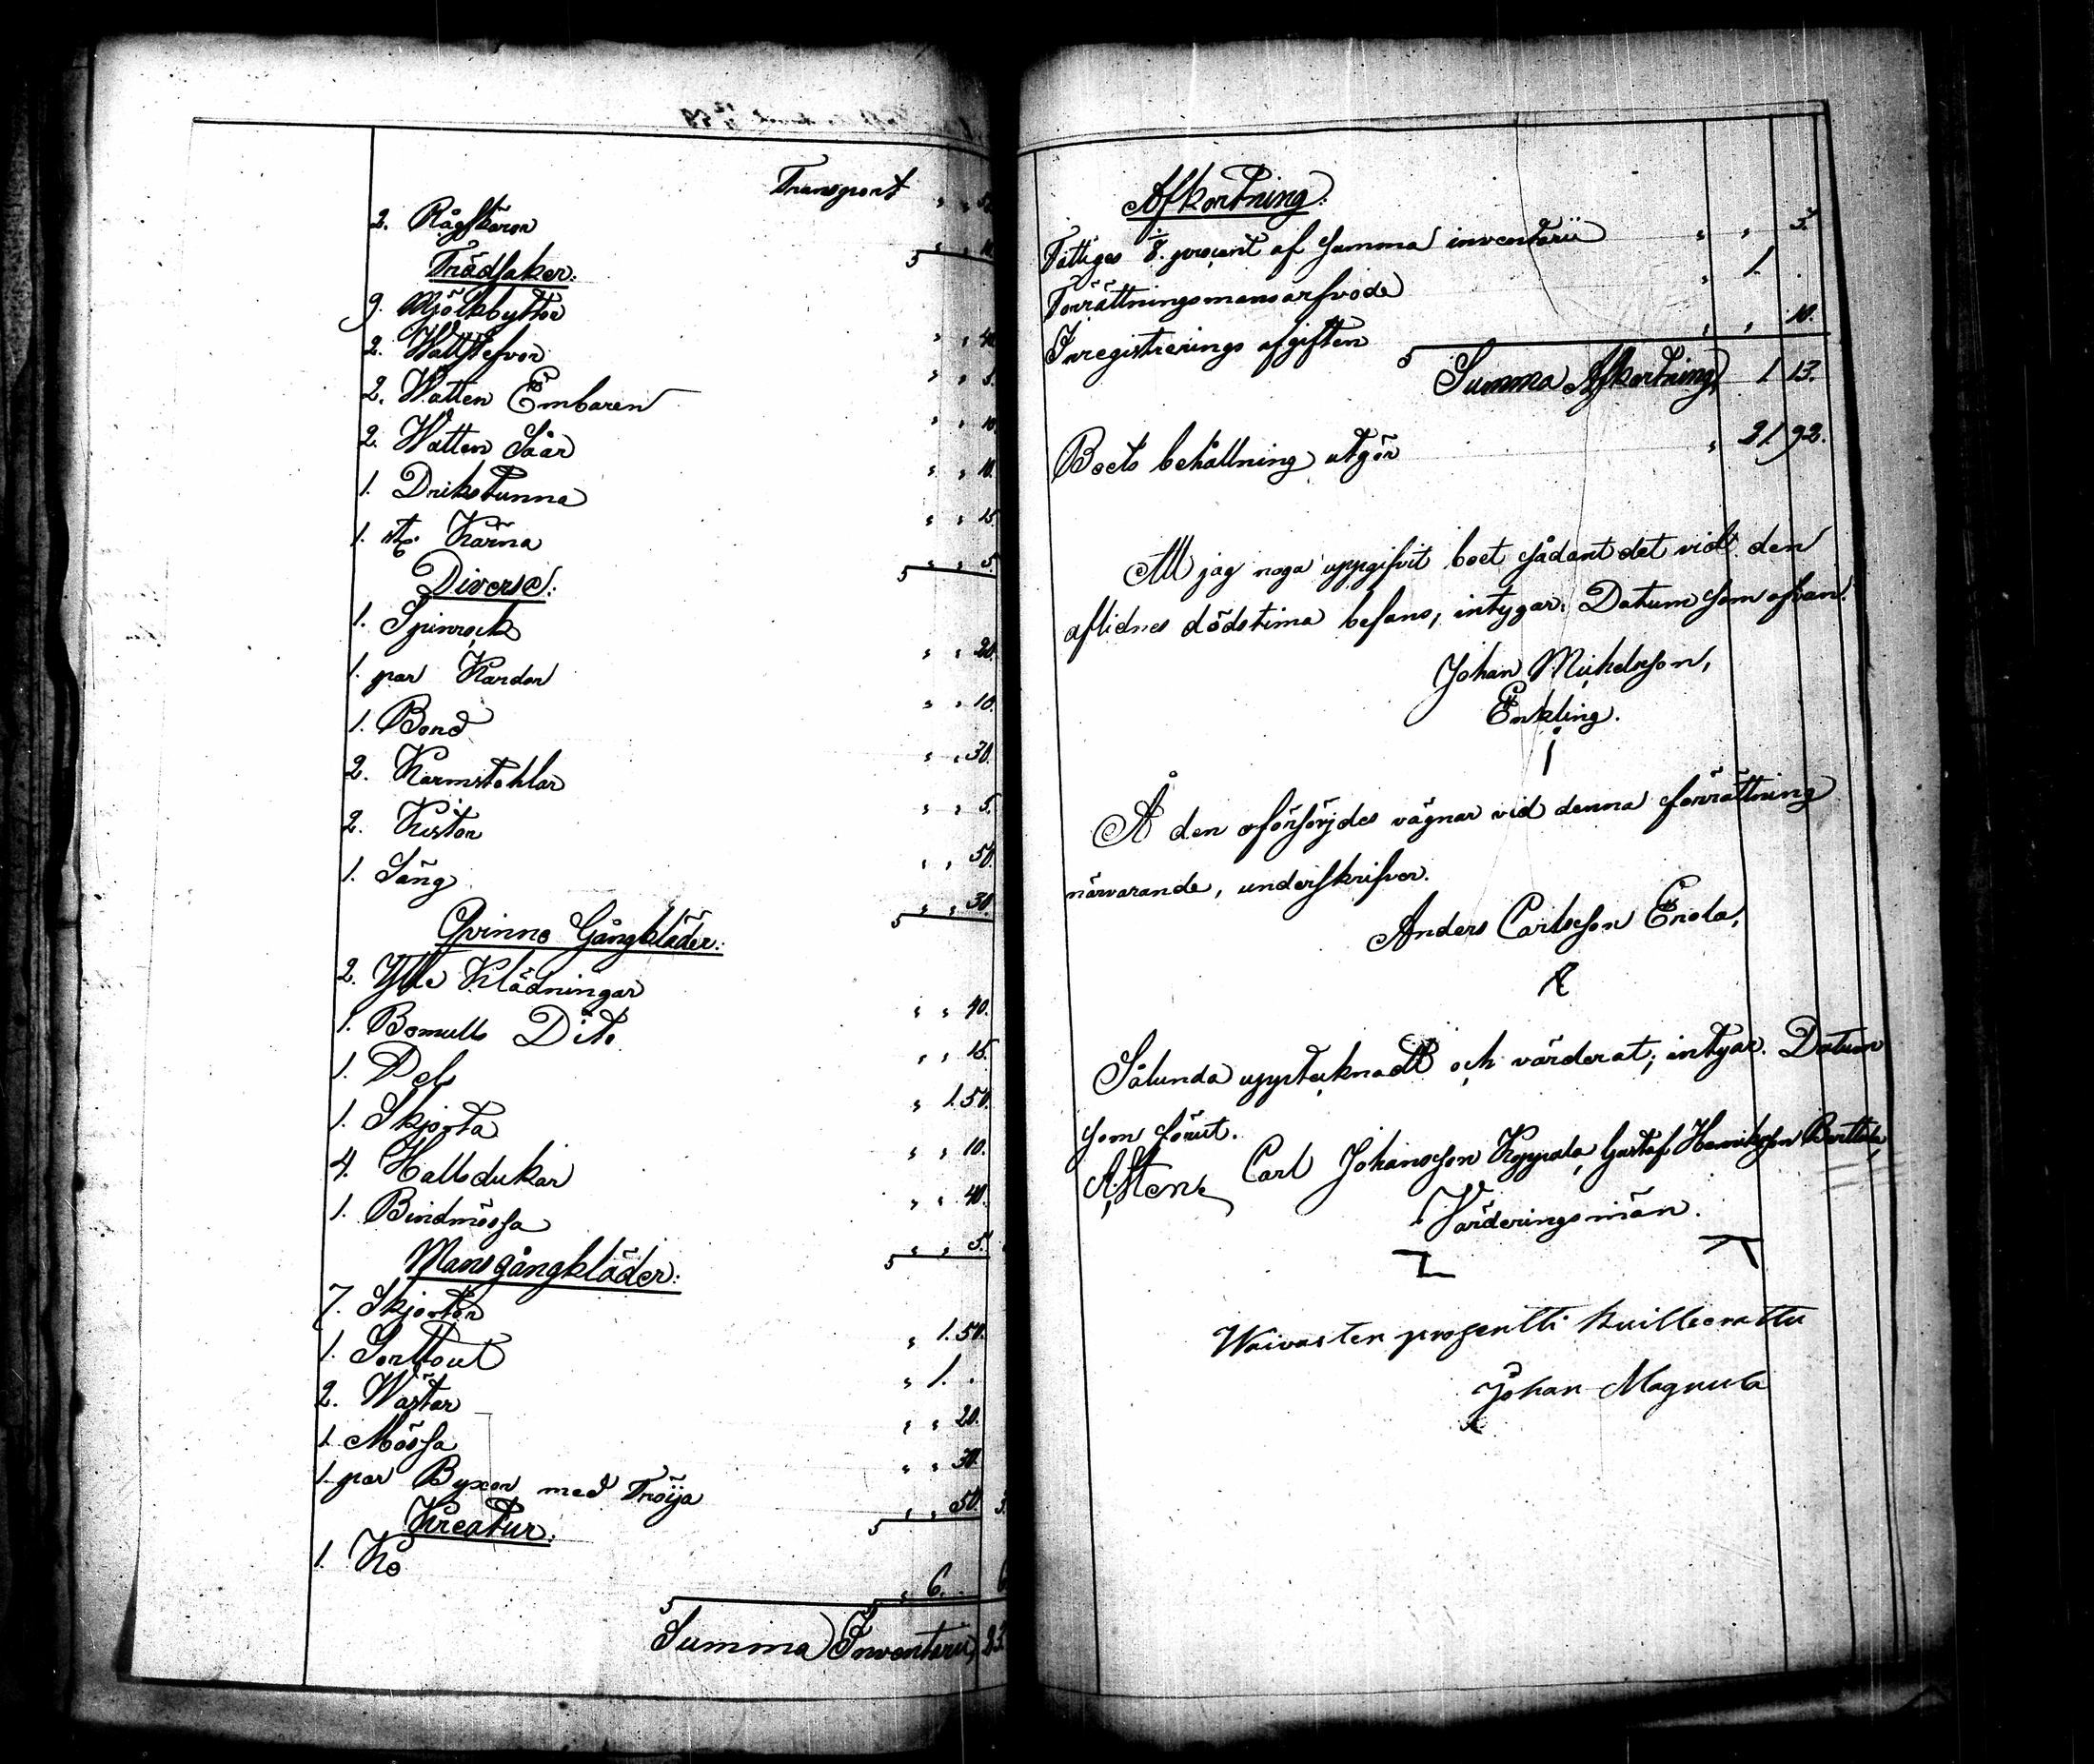 Transport " " 50.
2. Rågskäror " " 10.
Trädsaker:
9. Mjölkbyttor " " 40.
2. Wattstefvor " " 5.
2. Watten Embaren " " 10.
2. Watten Såar " " 10.
1. Drikstunna " " 15.
1. st. Kärna " " 5.
Diverse:
1. Spinrock " " 20.
1. par Kardor " " 10.
1. Bord " " 30.
2. Karmstohlar " " 5.
2. Kistor " " 50.
1. Säng " " 30.
Qvinno Gångkläder:
2. Ylle Klädningar " " 40.
1. Bomulls Dito " " 15.
1. Pels " 1.50.
1. Skjorta " " 10.
4. Hallsdukar " " 40.
1. Bindmössa " " 5.
Mansgångkläder:
7. Skjortor " 1.50.
1. Sorttout " 1. .
2. Wästar " " 20.
1. Mössa " " 30.
1. par Byxor med Tröija " " 50. 3.
Kreatur:
1. Ko " 6. . 6
Summa Inventarii, 23.
Afkortning:
Fattiges 1/8. procent af Summa inventarii " " 3.
Förrättningsmansarfvode " 1. .
Inregistrerings afgiften " " 10.
Summa Afkortning, 1 13.
Boets behållning utgör " 21 92.
Att jag noga uppgifvit boet sådant det vid den
aflidnes dödstima befans, intygar. Datum som ofvan.
Johan Michelsson,
Enkling.
Å den oförsörjdes vägnar vid denna förrättning
närvarande, underskrifver.
Anders Carlsson Erola,
Sålunda upptecknadt och värderat; intygar. Datum
som förut.
A. Sten, Carl Johansson Kyppala, Gustaf Henriksson Berttala,
Värderingsmän.
Waivasten prosentti kuitteerattu
Johan Magnula